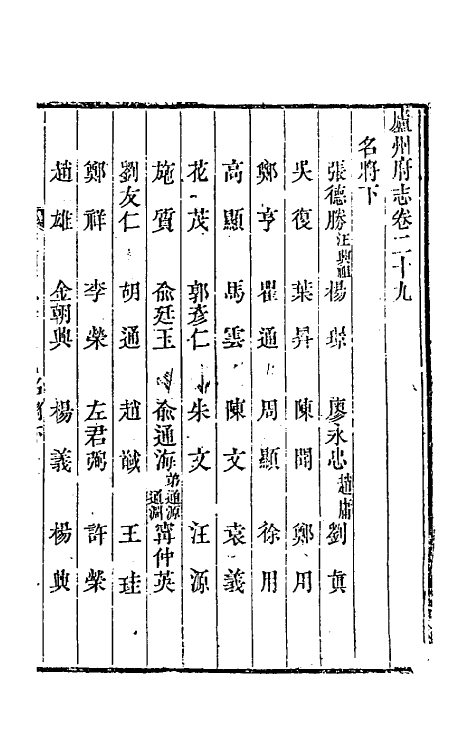 廬州府志卷二十九
名將下
張德勝汪興祖楊璟廖永忠趙庸劉真
吳復葉昇陳聞鄭用
鄭亨瞿通周顯徐用
高顯馬雲陳文袁義
花茂郭彥仁朱文汪源
施質俞廷玉俞通海弟通源通淵甯仲英
劉友仁胡通趙𤣱王珪
鄭祥李榮左君弼許榮
趙雄金朝興楊義楊興